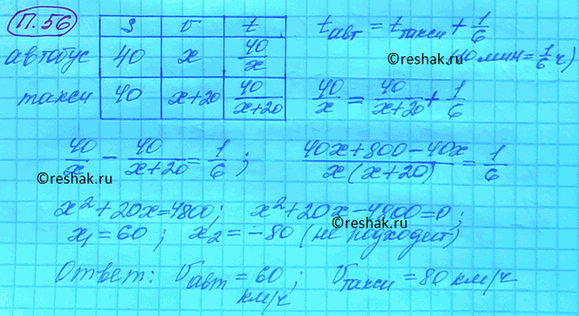 П.56
S v t
автобус 40 x 40/x
такси 40 x+20 40/(x+20)
t авт = t такси + 1/6
(10 мин = 1/6 ч)
©reshak.ru
40/x = 40/(x+20) + 1/6
40/x - 40/(x+20) = 1/6 ; (40x+800-40x)/(x(x+20)) = 1/6
©reshak.ru
©reshak.ru
x²+20x=4800; x²+20x-4800=0;
x₁=60; x₂=-80 (не подходит)
Ответ: v авт = 60 км/ч; v такси = 80 км/ч